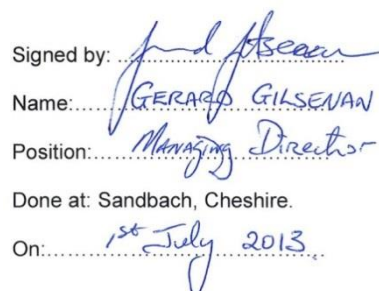 Signed by:
Name: GERARD GILSENAN
Position: Managing Director
Done at: Sandbach, Cheshire.
On: 1st July 2013